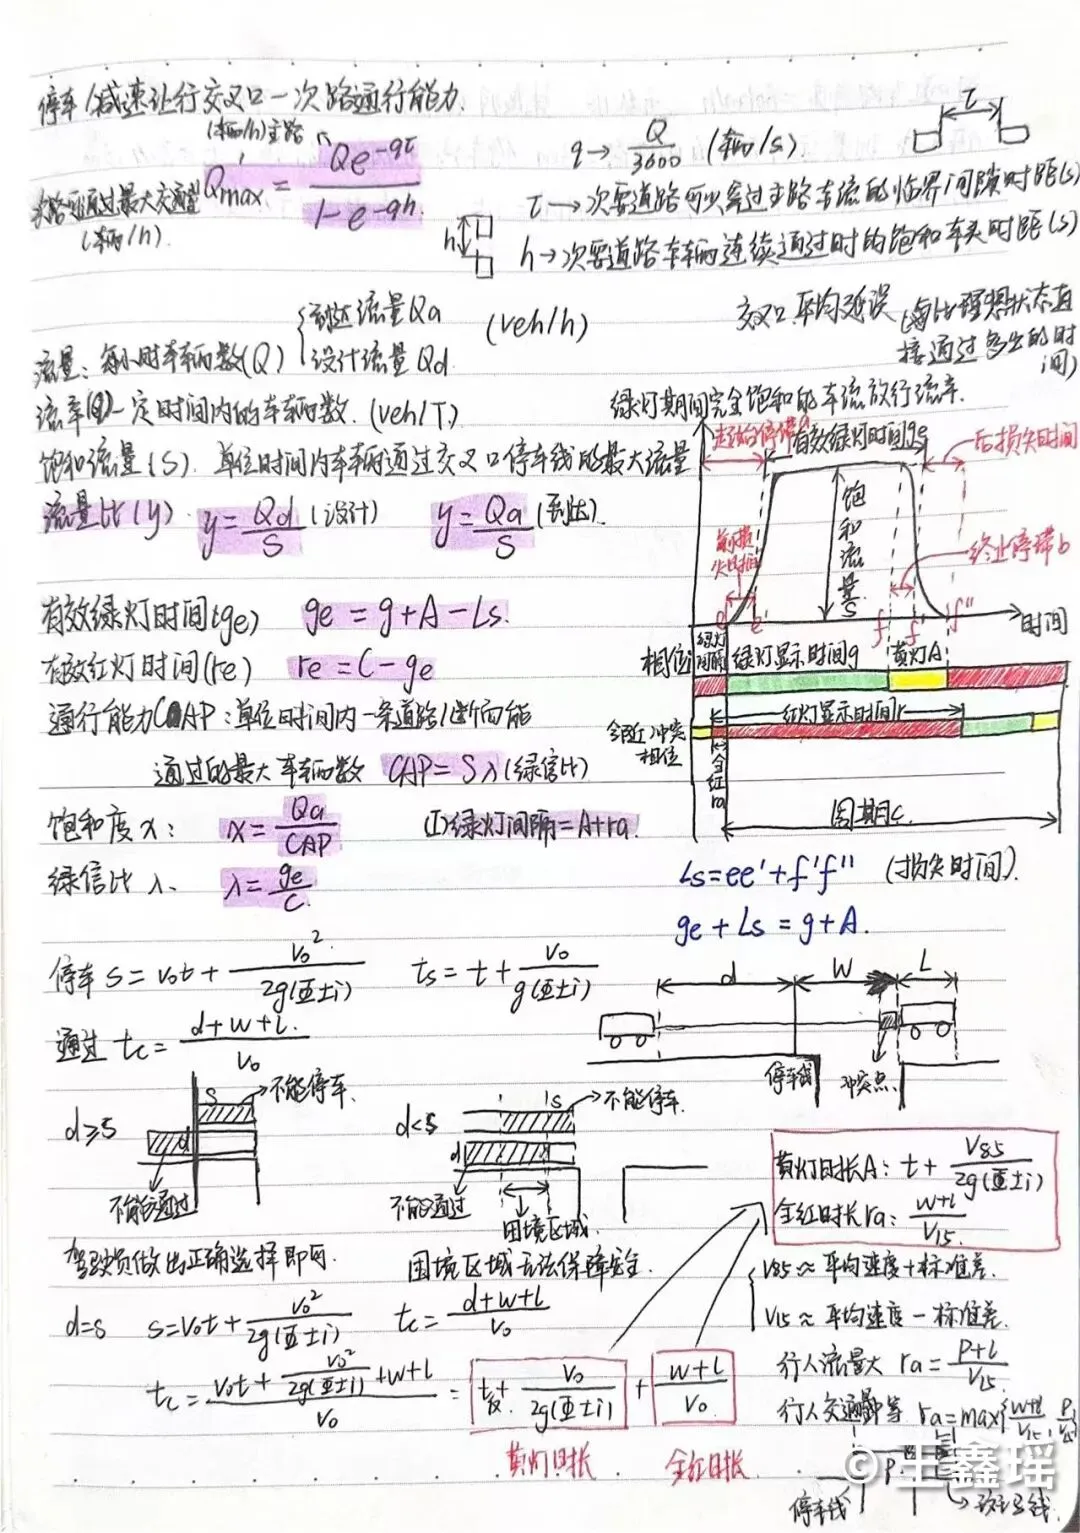 停车/减速让行交叉口一次路通行能力.
(辆/h)主路
Qmax = Qe^-qτ / 1-e^-qh
次路可通过最大交通量
(辆/h).
q→ Q/3600 (辆/s).
τ
τ→次要道路可以穿过主路车流的临界间隙时距(s)
h
h→次要道路车辆连续通过时的饱和车头时距(s)
流量:每小时车辆数(Q) {到达流量Qa 设计流量Qd (veh/h)
交叉口平均延误(每比理想状态直接通过多出的时间)
流率(q)一定时间内的车辆数.(veh/T)
饱和流量(S).单位时间内车辆通过交叉口停车线的最大流量
流量比(y). y=Qd/S(设计) y=Qa/S(到达).
绿灯期间完全饱和的车流放行流率.
起始停滞a
有效绿灯时间ge
后损失时间
前损失时间
饱和流量S
终止停滞b
e e' f f' f''
时间
有效绿灯时间(ge) ge=g+A-Ls.
有效红灯时间(re) re=C-ge
通行能力CAP:单位时间内一条道路/断面能
通过的最大车辆数 CAP=Sλ(绿信比)
饱和度x: x=Qa/CAP (I)绿灯间隔=A+ra.
绿信比λ. λ=ge/C
相位i
绿灯间隔
绿灯显示时间g
黄灯A
红灯显示时间r
冲突相位
全红ra
周期C
Ls=ee'+f'f'' (损失时间).
ge+Ls=g+A.
停车 S=V0t+ V0²/2g(亚±i) ts=t+ V0/g(亚±i)
通过 tc= d+w+L/V0
d W L
停车线
冲突点
d≥s
S
d
不能停车.
不能通过
d<s
s
d
不能停车.
不能通过
困境区域.
驾驶员做出正确选择即可.
困境区域无法保障安全.
黄灯时长A: t+ V85/2g(亚±i)
全红时长ra: w+L/V15.
V85≈平均速度+标准差.
V15≈平均速度-标准差.
d=s s=V0t+ V0²/2g(亚±i) tc= d+w+L/V0
tc= V0t+ V0²/2g(亚±i) +w+L / V0 = t+ V0/2g(亚±i) + w+L/V0
黄灯时长 全红时长.
行人流量大 ra= P+L/V15
行人交通量中等 ra=max{w+L/V15,
P
停车线
© 王鑫瑶